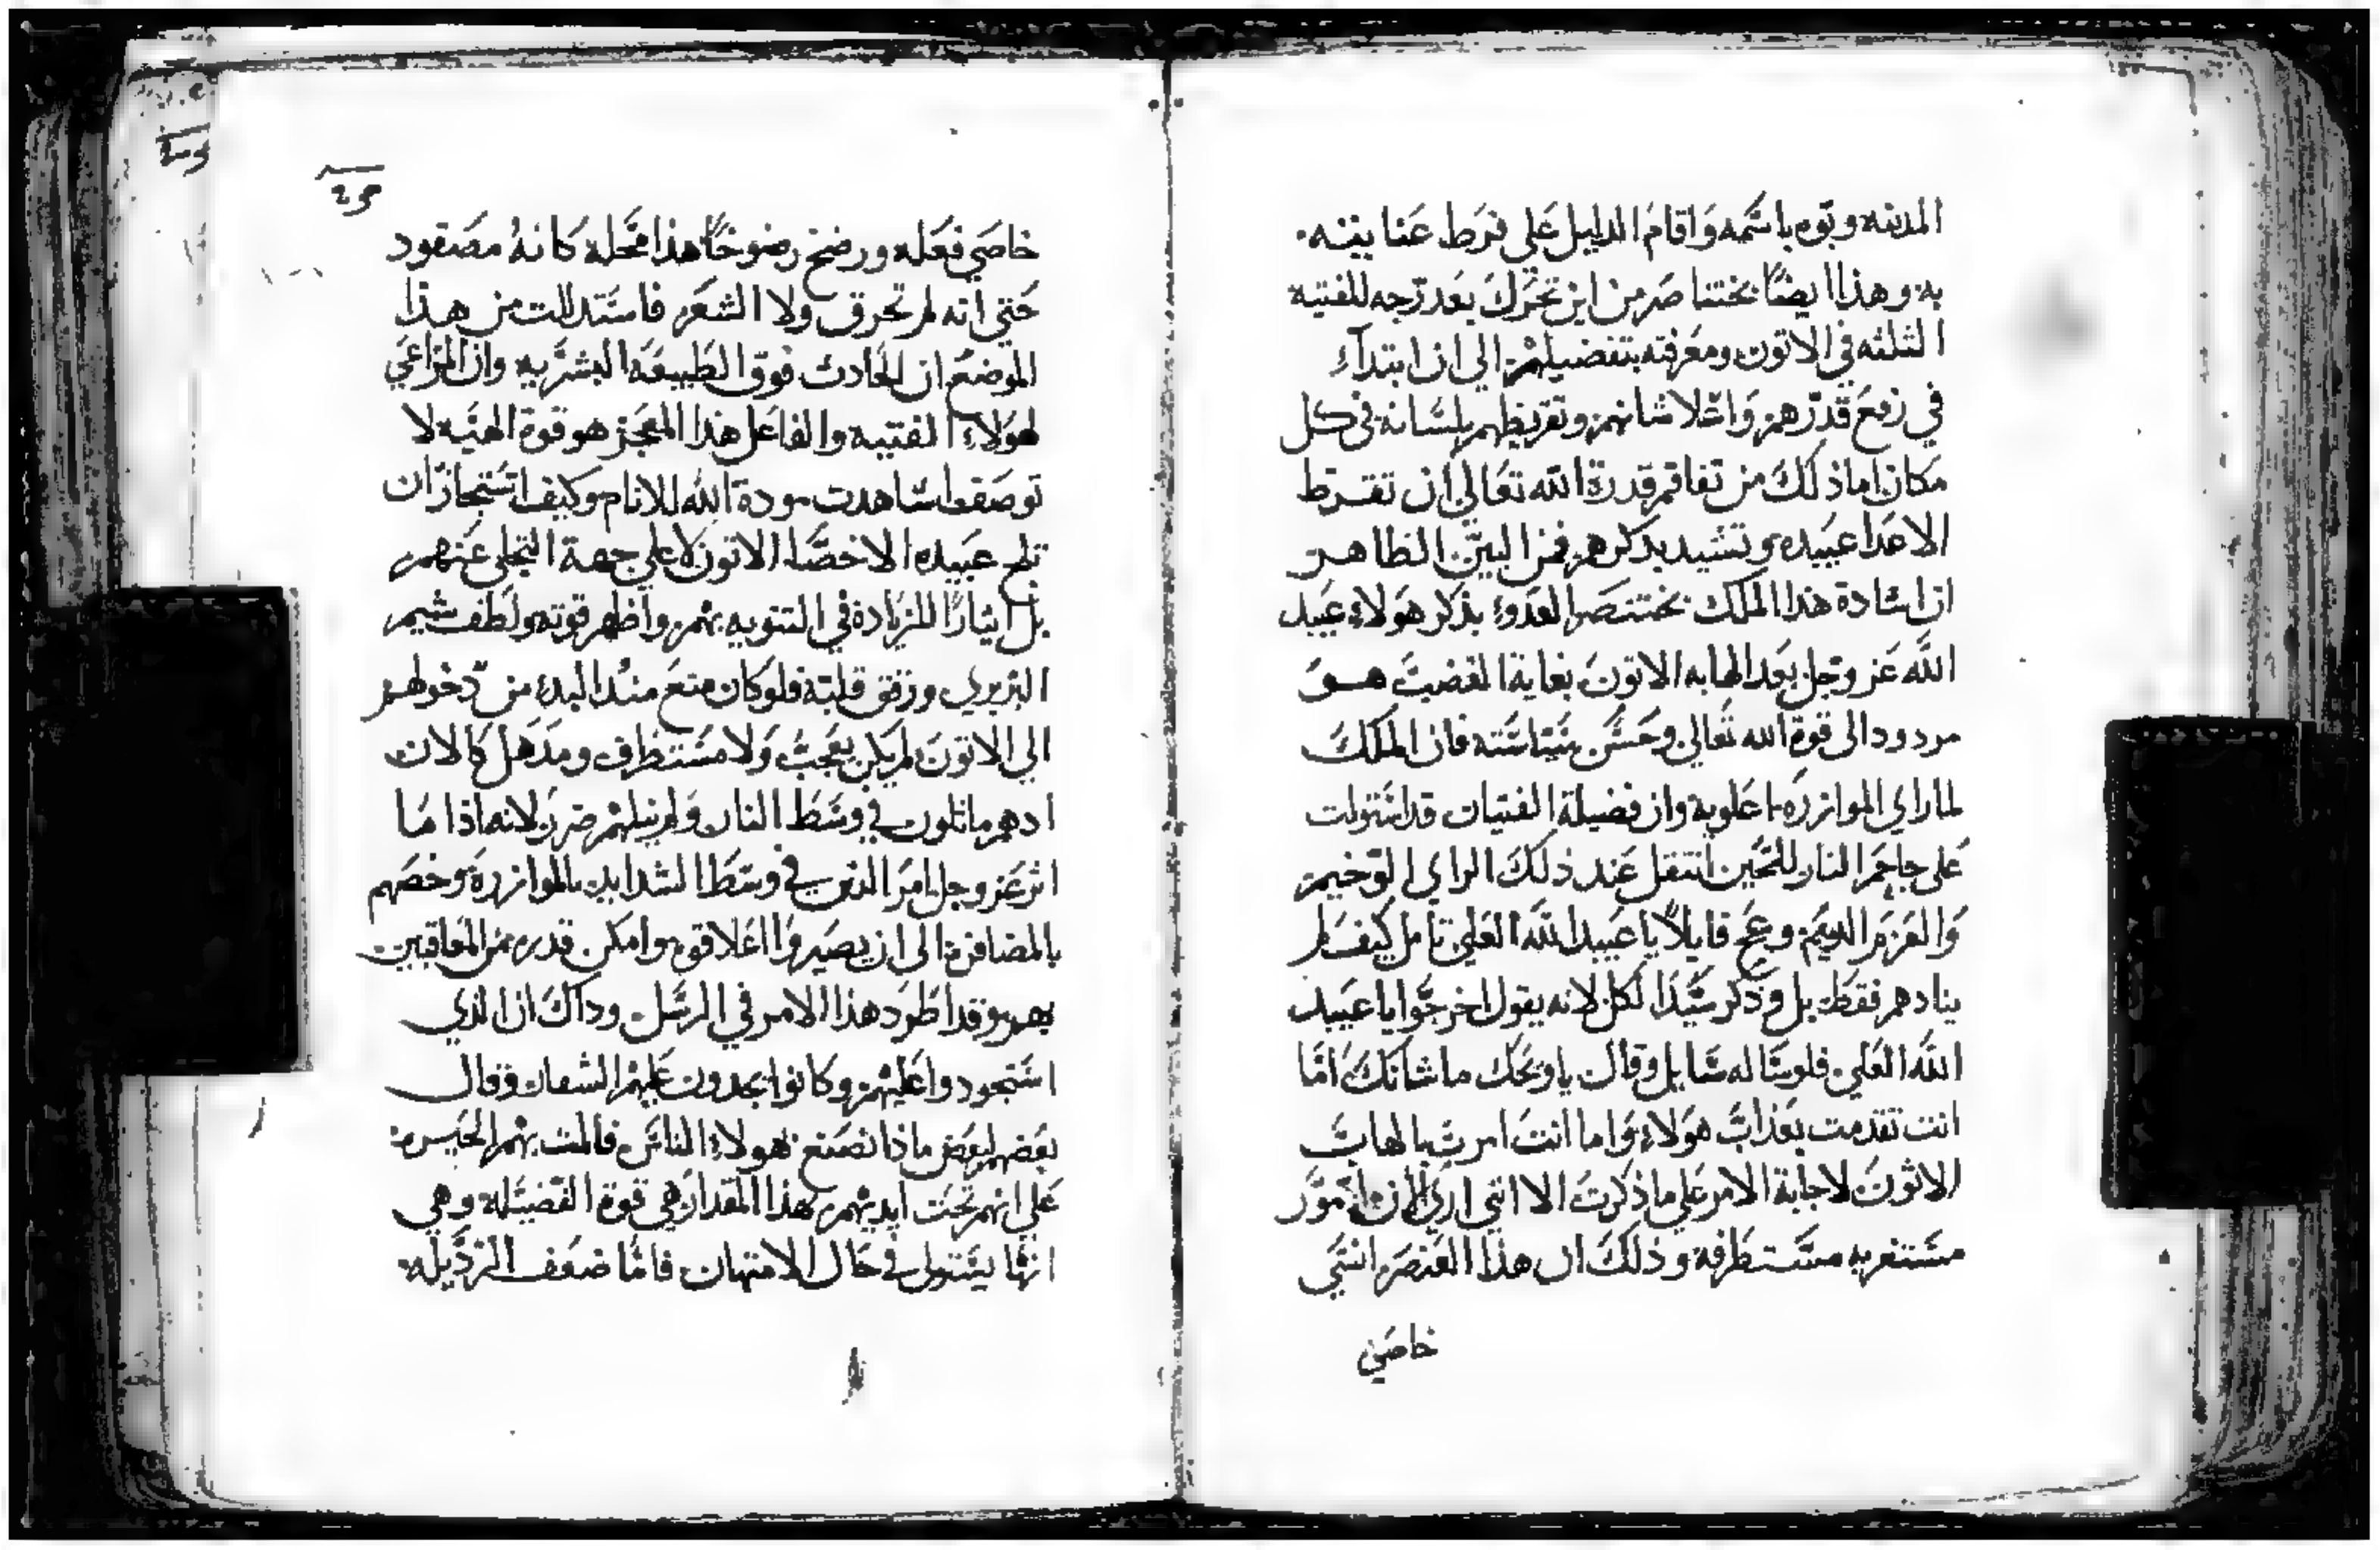 المدينه ونوه باسمه واقام الدليل على فرط عنايته
به وهذا ايضا بختنا صر من اين تحرك بعد زجه للفتيه
الثلثه في الاتون ومعرفته بتفضيلهم الى ان ابتداء
في رفع قدرهم واعلا شانهم وتقريظهم بلسانه في كل
مكان اما ذلك من تفاقم قدرة الله تعالى ان تقرظ
الاعدا عبيده وتشيد بذكرهم فمن البين الظاهر
ان اشادة هذا الملك بختنصر العدو بذكر هولاء عبيد
الله عز وجل بعد الهابه الاتون بغاية الغضب هو
مردود الى قوة الله تعالى وحسن سياسته فان الملك
لما راي الموازره علويه وان فضيلة الفتيات قد استولت
على جاحم النار للحين انتقل عند ذلك الراي الوخيم
والعزم الذميم وعج قايلا يا عبيد الله العلي تامل كيف لم
ينادهم فقط بل وذكر سيد الكل لانه يقول اخرجوا يا عبيد
الله العلي فلو ساله سايل وقال ياويحك ما شانك اما
انت تقدمت بعذاب هولاء واما انت امرت بالهاب
الاثون لاجابة الامر على ما ذكرت الا انني اري الان امور
مستغربه مستطرفه وذلك ان هذا العنصر انسي
خاصي
خاصي فعله ورضخ رضوخا هذا محله كانه مصفود
حتى انه لم تحرق ولا الشعر فاستدللت من هذا
الموضع ان الحادث فوق الطبيعه البشريه وان المراعي
لهولاء الفتيه والفاعل هذا المعجز هو قوة الهيه لا
توصف اشاهدت مودة الله للانام وكيف استجاز ان
تلج عبيده الاخصا الاتون لا على جهة التخلي عنهم
بل ايثارا للزيادة في التنويه بهم واظهر قوته ولطف شيم
البربري ورقق قلبه فلو كان منع منذ البدء من دخولهم
الي الاتون لم يكن يعجب ولا مستظرف ومذهل كالان
اذ هم ماثلون في وسط النار ولم ينلهم ضرر لانه اذا ما
اثر عز وجل امر الذين في وسط الشدايد بالموازرة وخصهم
بالمضافرة الى ان يصيروا اعلا قوه وامكن قدره من المعاقبين
بهم وقد اطرد هذا الامر في الرسل وذاك ان الذي
استحودوا عليهم وكانوا يحدون عليهم الشفار وقال
بعضهم لبعض ماذا نصنع بهولاء الناس فالمت بهم الحيس
على انهم تحت ايديهم بهذا المقدار هي قوة الفضيله وهي
انها يستولي في حال الامتهان فاما ضعف الرذيله